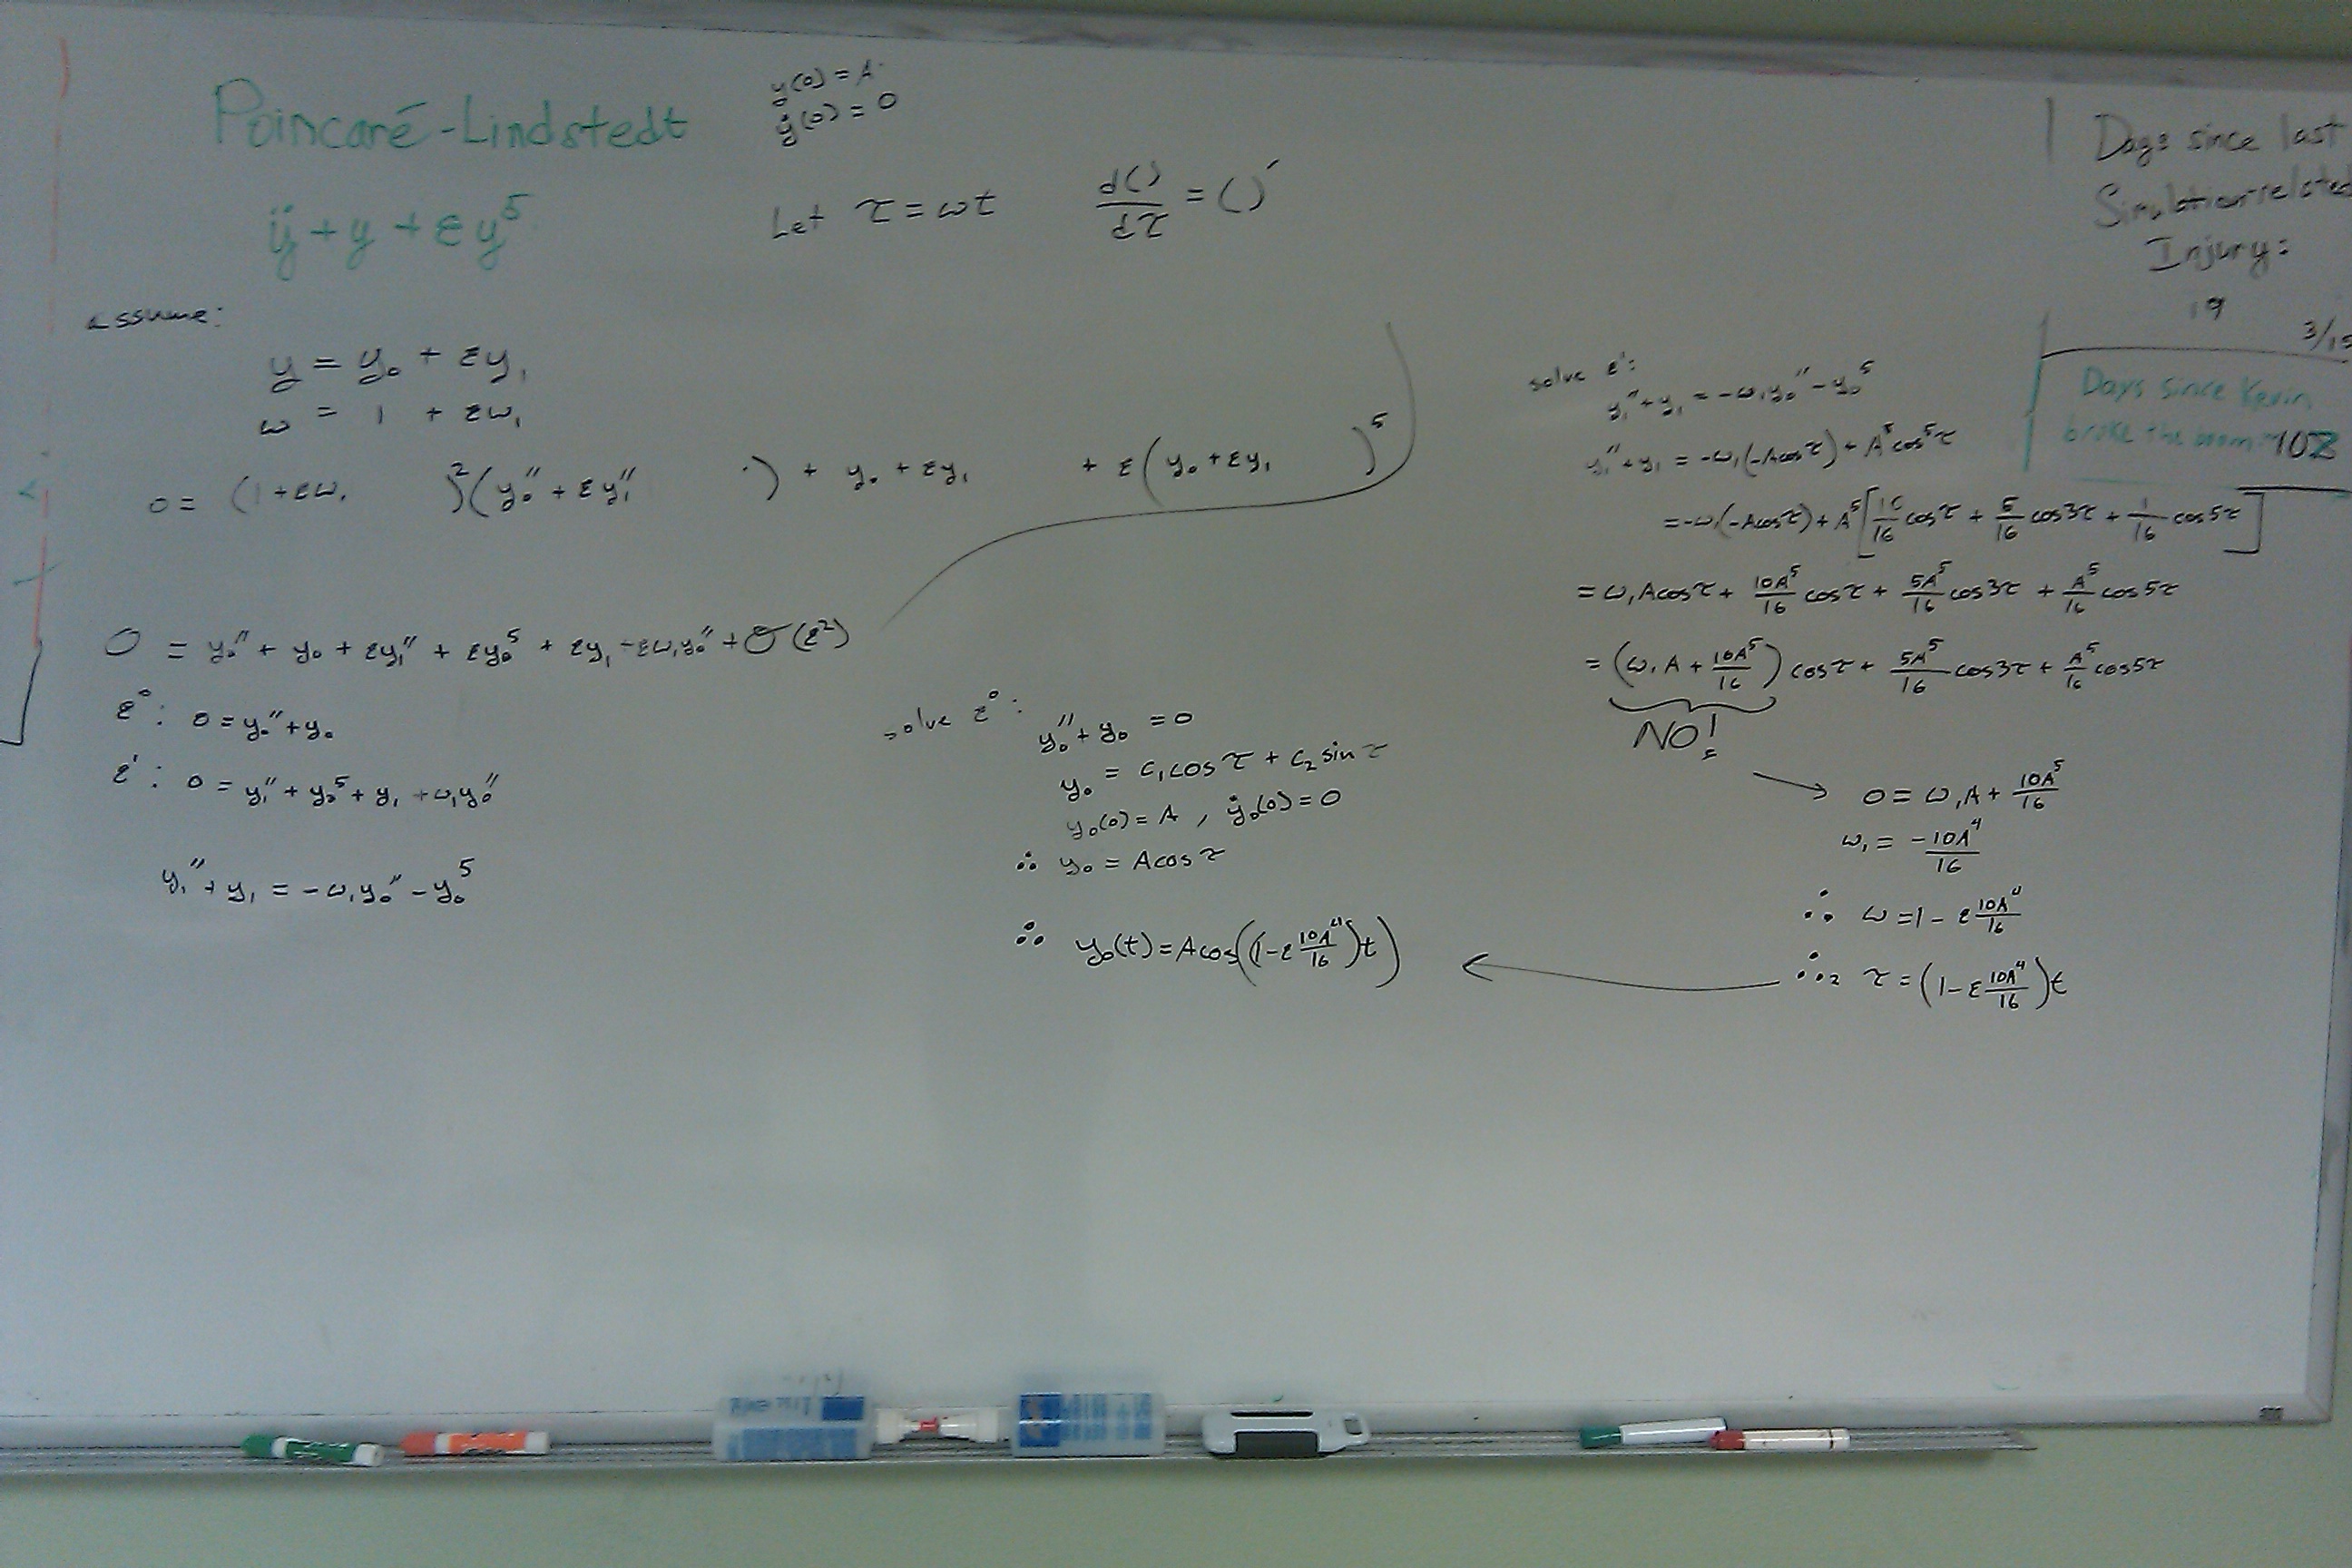 Poincaré-Lindstedt
ÿ + y + εy⁵
y(0) = A
ẏ(0) = 0
Let τ = ωt    d()/dτ = ()′
assume:
y = y₀ + εy₁
ω = 1 + εω₁
0 = (1+εω₁ )²(y₀″ + εy₁″ ) + y₀ + εy₁ + ε(y₀ + εy₁ )⁵
0 = y₀″ + y₀ + εy₁″ + εy₀⁵ + εy₁ - εω₁y₀″ + O(ε²)
ε⁰: 0 = y₀″ + y₀
ε¹: 0 = y₁″ + y₀⁵ + y₁ + ω₁y₀″
y₁″ + y₁ = -ω₁y₀″ - y₀⁵
solve ε⁰:
y₀″ + y₀ = 0
y₀ = c₁cos τ + c₂ sin τ
y₀(0) = A , ẏ₀(0) = 0
∴ y₀ = A cos τ
∴ y₀(t) = A cos((1-ε 10A⁴/16)t)
solve ε¹:
y₁″ + y₁ = -ω₁y₀″ - y₀⁵
y₁″ + y₁ = -ω₁(-Acosτ) + A⁵cos⁵τ
= -ω₁(-Acosτ) + A⁵[10/16 cosτ + 5/16 cos3τ + 1/16 cos5τ]
= ω₁Acosτ + 10A⁵/16 cosτ + 5A⁵/16 cos3τ + A⁵/16 cos5τ
= (ω₁A + 10A⁵/16) cosτ + 5A⁵/16 cos3τ + A⁵/16 cos5τ
NO!
→ 0 = ω₁A + 10A⁵/16
ω₁ = -10A⁴/16
∴ ω = 1 - ε 10A⁴/16
∴₂ τ = (1 - ε 10A⁴/16)t
Days since last
Simulation-related
Injury:
19
3/15
Days since Kevin
broke the 108